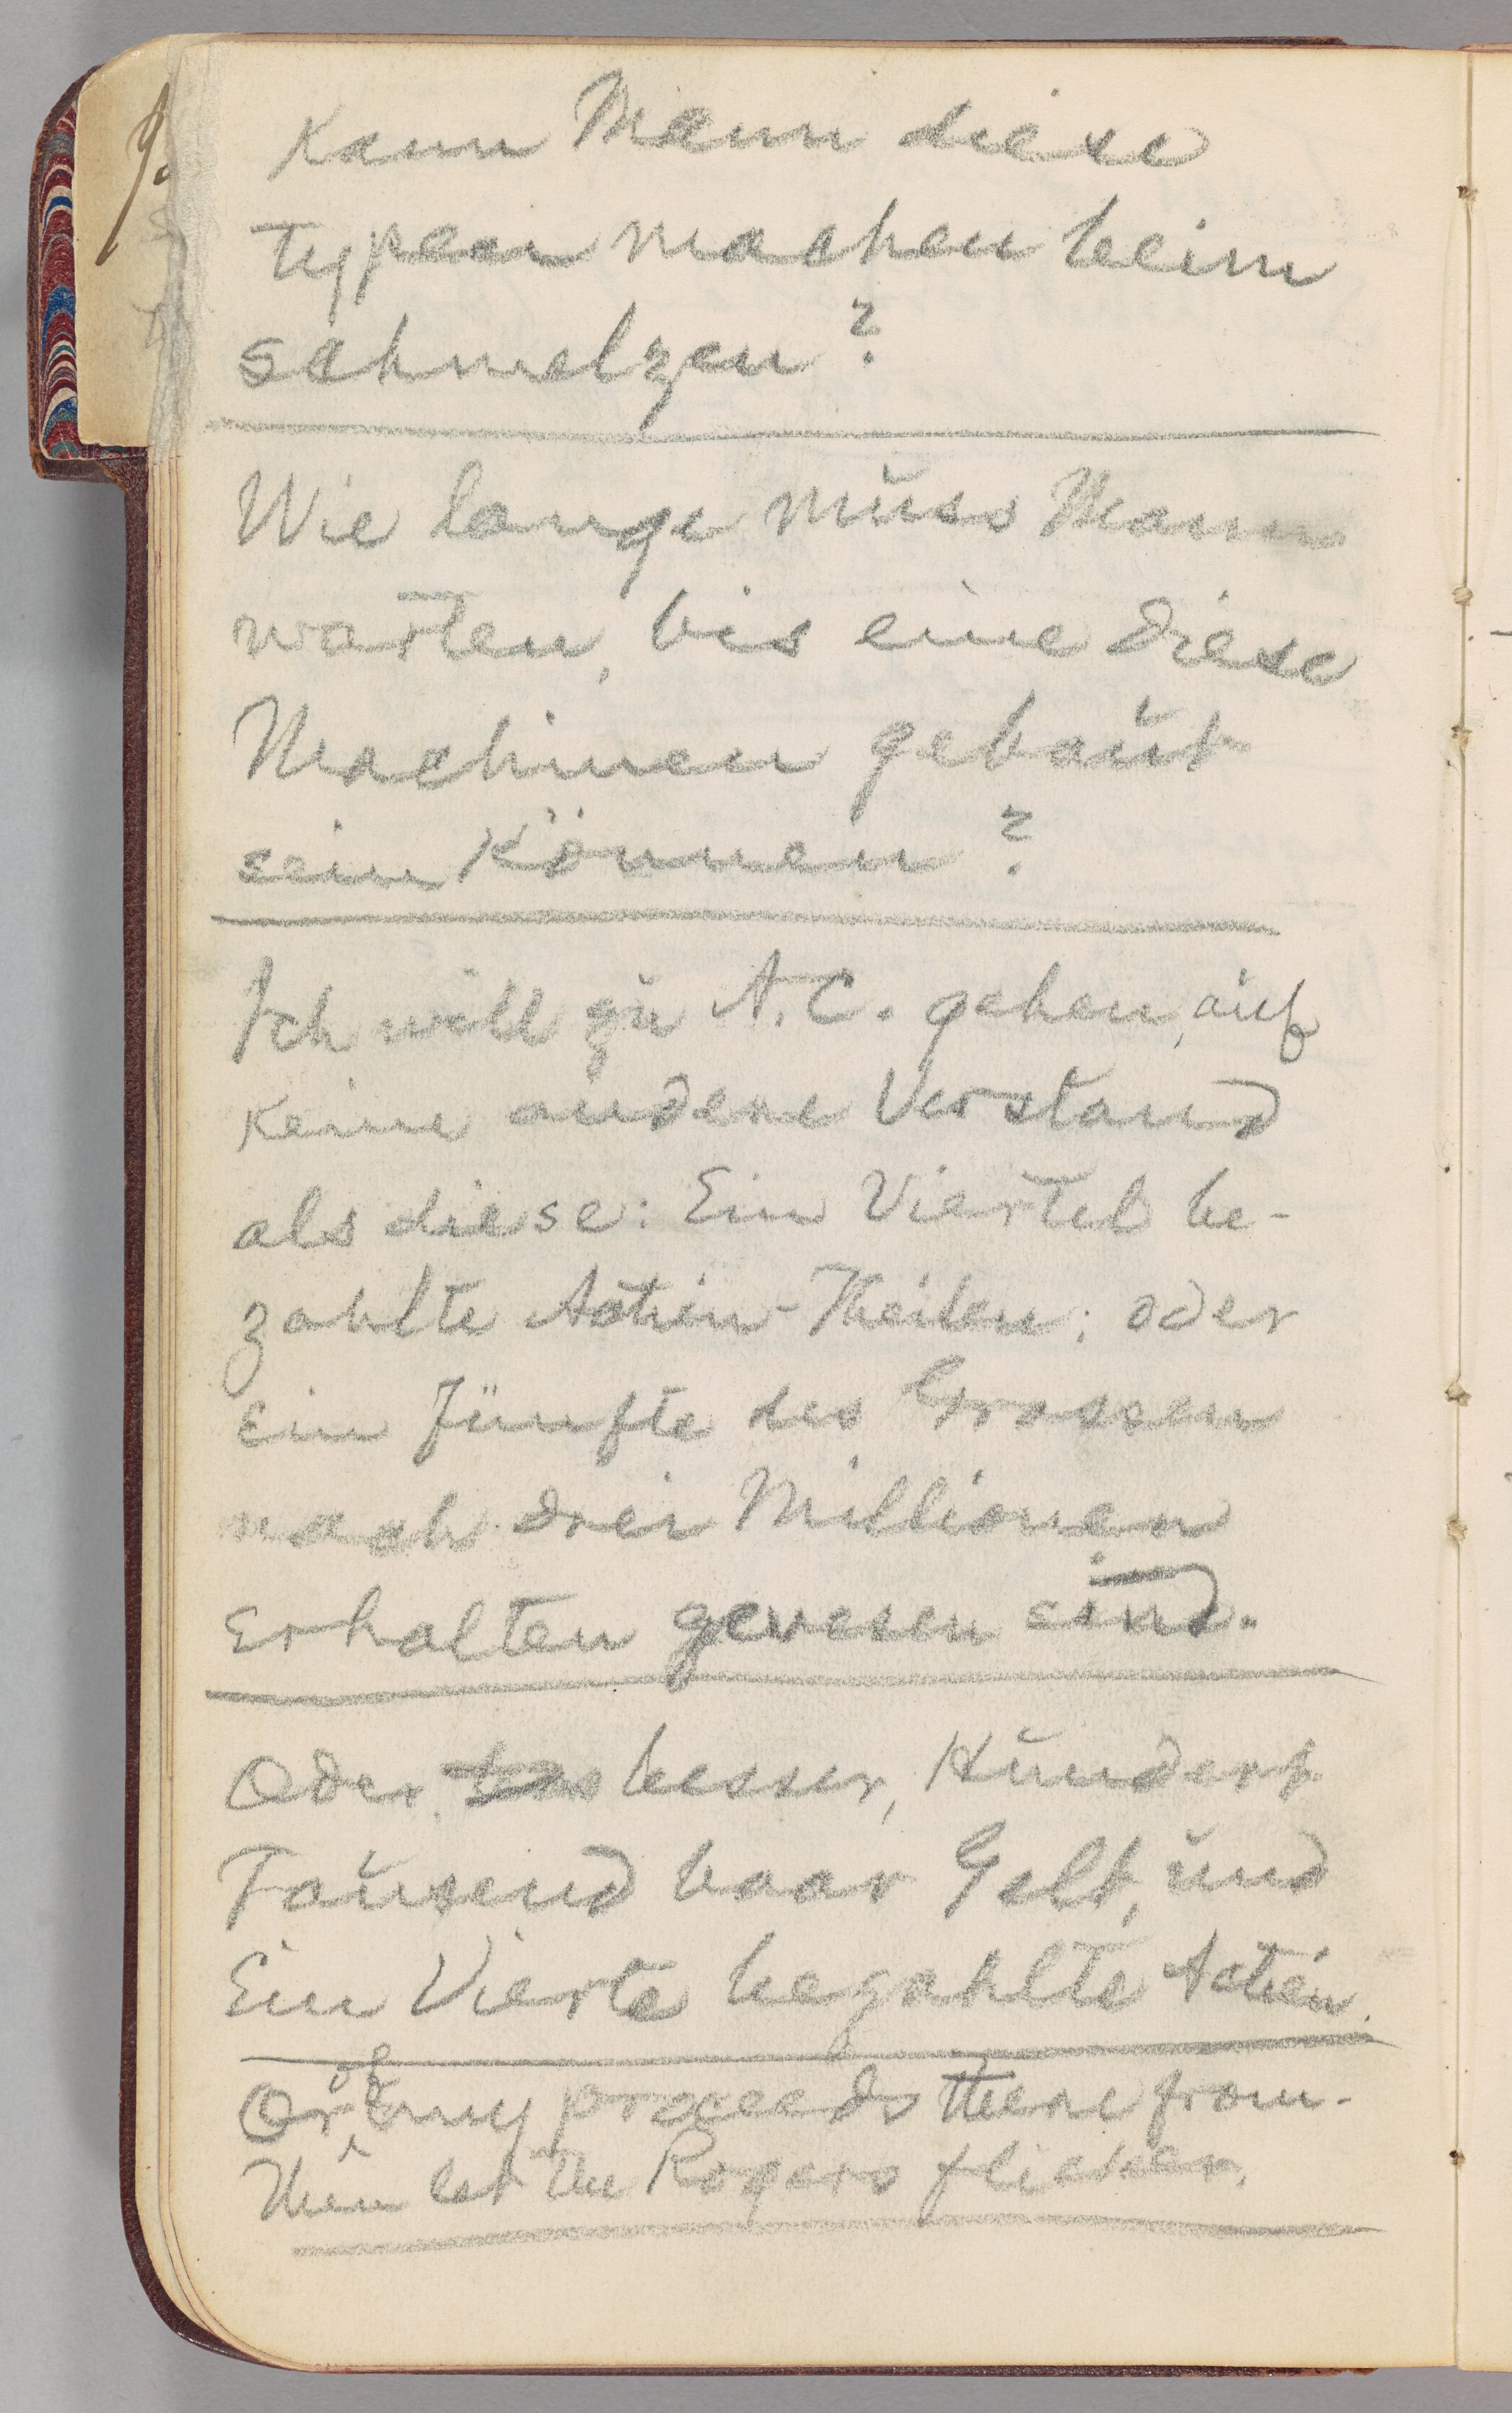 Kann Mann diese
typen machen beim
schmelzen?
Wie lange muss Mann
warten, bis eine diese
Machinen gebaut
sein können?
Ich will zu A.C. gehen, auf
keine andere Verstand
als diese: Ein Viertel be-
zahlte Actien-Theilen; oder
Ein Fünfte des Grossen
nach drei Millionen
erhalten gewesen sind.
Oder, besser, Hundert
Tausend baar Gelt, und
Ein Vierte bezahlte Actien.
Or of any proceeds therefrom.
Then let the Rogers fliessen.